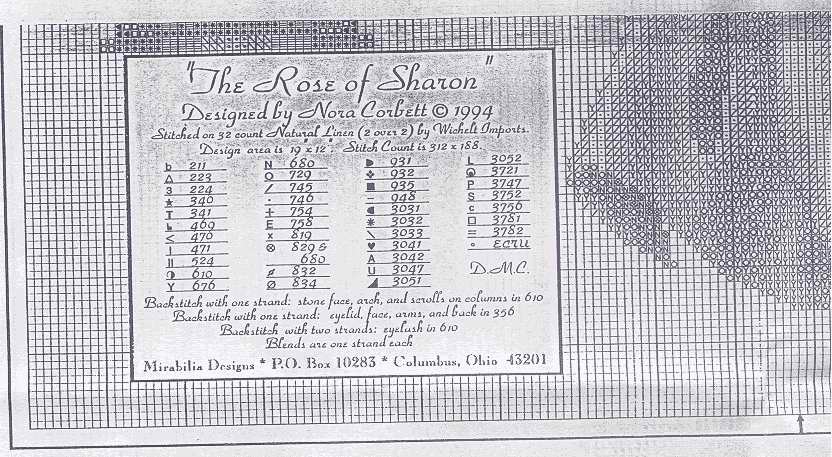 "The Rose of Sharon"
Designed by Nora Corbett © 1994
Stitched on 32 count Natural Linen (2 over 2) by Wichelt Imports.
Design area is 19" x 12". Stitch Count is 312 x 188.
b 211
△ 223
3 224
★ 340
T 341
469
< 470
| 471
|| 524
◑ 610
Y 676
N 680
O 729
/ 745
· 746
+ 754
E 758
x 819
⊗ 829 &
680
ø 832
Ø 834
◗ 931
❖ 932
■ 935
– 948
◖ 3031
✱ 3032
\ 3033
♥ 3041
A 3042
U 3047
◢ 3051
L 3052
3721
P 3747
S 3752
c 3756
□ 3781
= 3782
∘ Ecru
D.M.C.
Backstitch with one strand: stone face, arch, and scrolls on columns in 610
Backstitch with one strand: eyelid, face, arms, and back in 356
Backstitch with two strands: eyelash in 610
Blends are one strand each
Mirabilia Designs * P.O. Box 10283 * Columbus, Ohio 43201